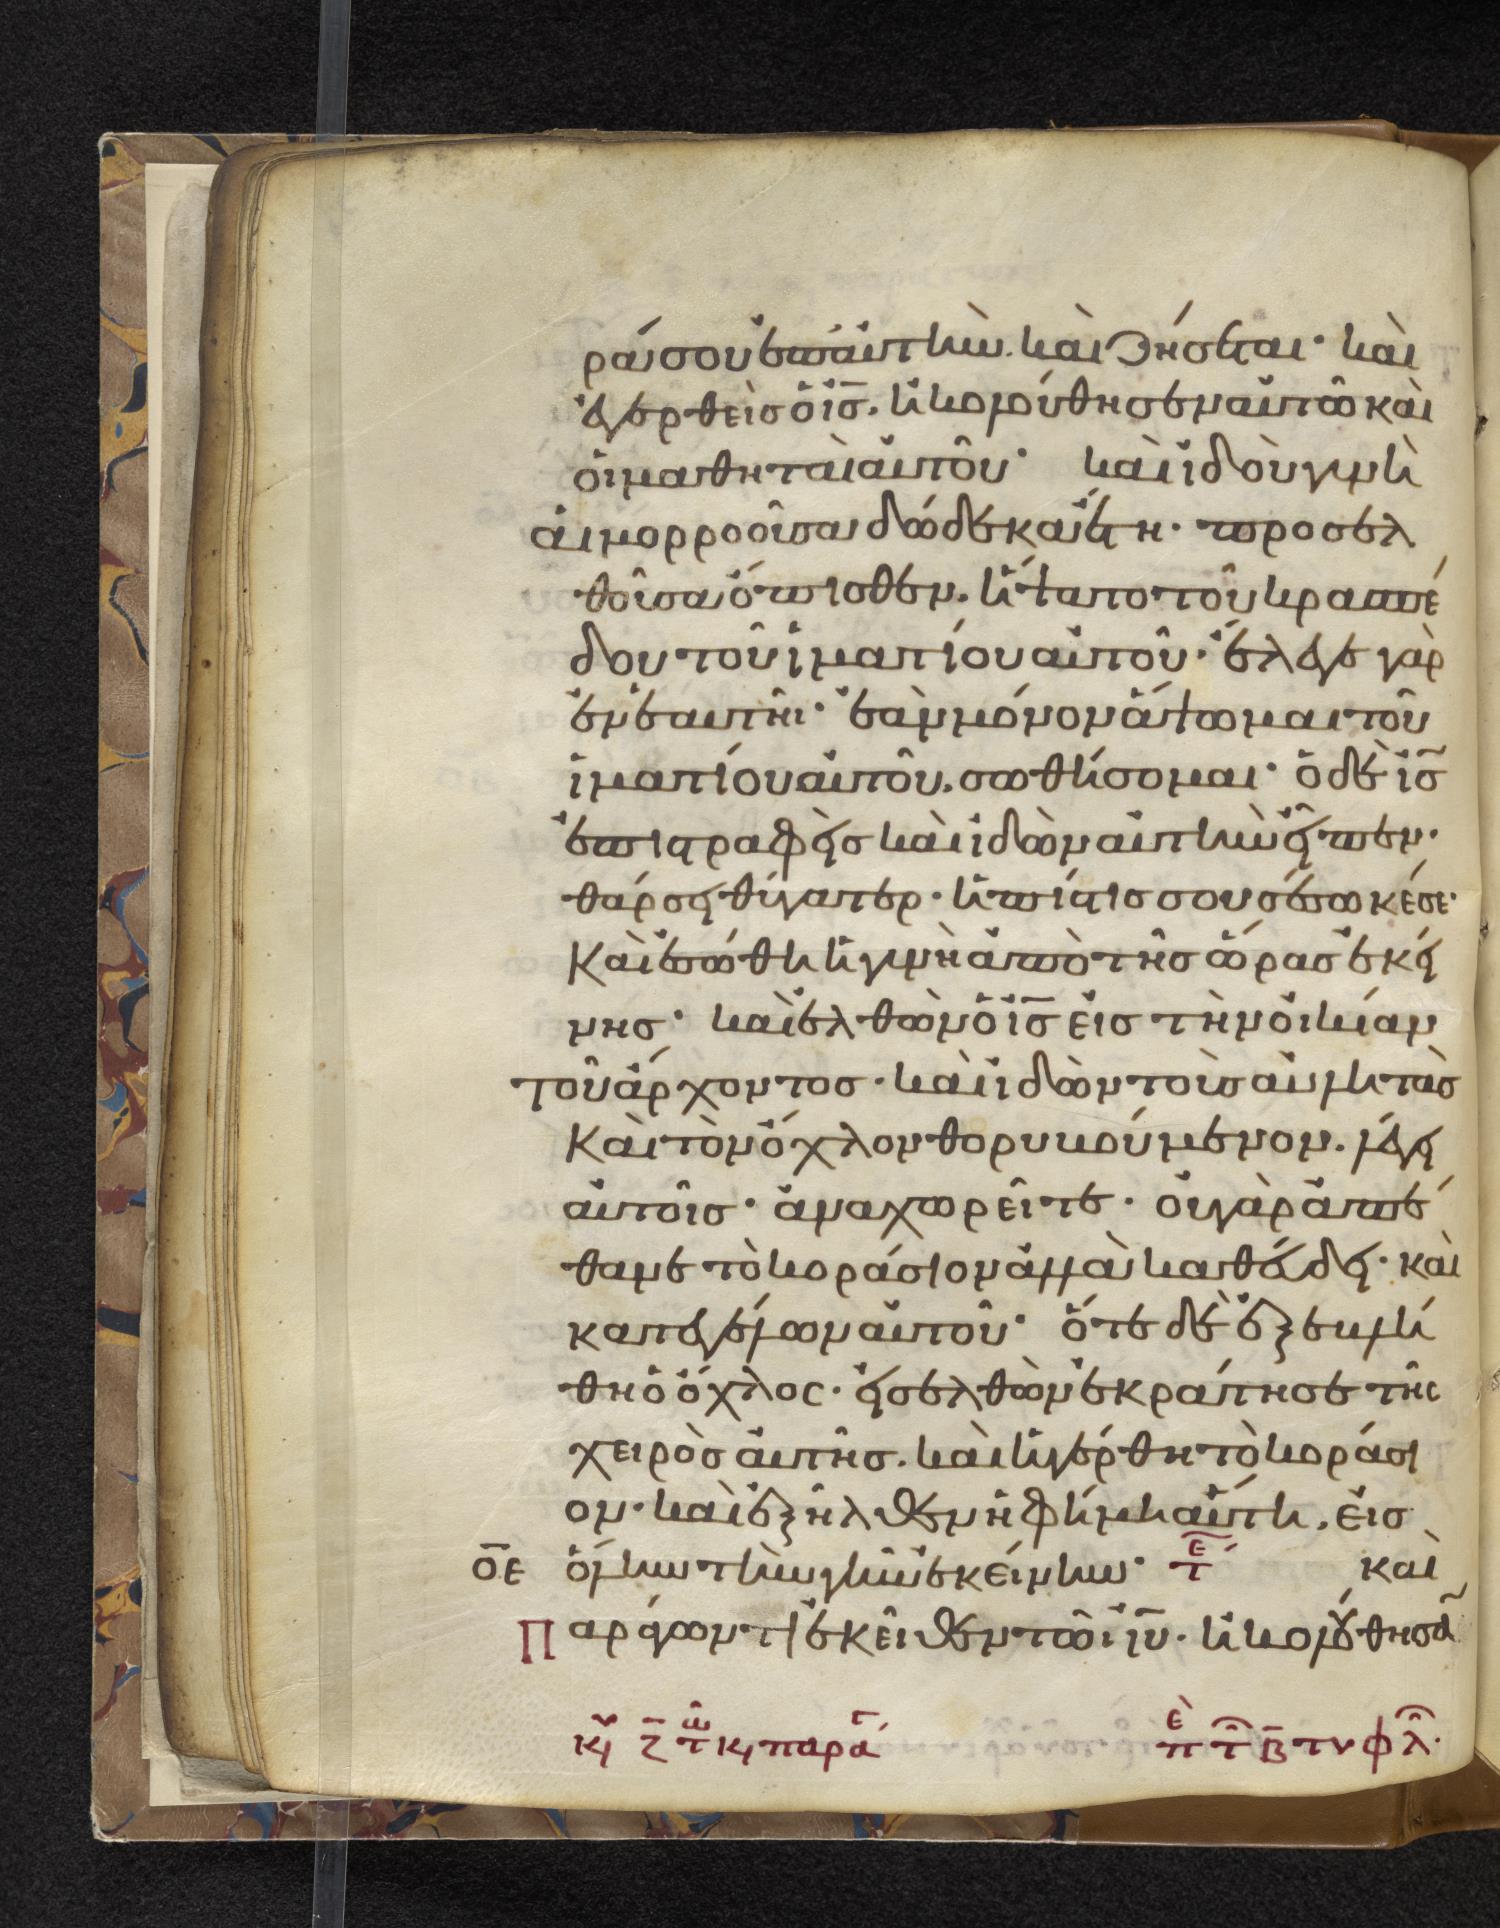 ράσου ἐπ' αὐτὴν. καὶ ζήσεται· καὶ
ἐγερθεὶς ὁ ἰ̅ς̅. ἠκολούθησεν αὐτῶ καὶ
οἱ μαθηταὶ αὐτοῦ· καὶ ἰδοὺ γυνὴ
αἱμορροοῦσα δώδεκα ἔτη· προσελ
θοῦσα ὄπισθεν. ἥψατο τοῦ κρασπέ
δου τοῦ ἱματίου αὐτοῦ· ἔλεγε γὰρ
ἐν ἑαυτῆι· ἐὰν μόνον ἅψωμαι τοῦ
ἱματίου αὐτοῦ. σωθήσομαι· ὁ δὲ ἰ̅ς̅
ἐπιστραφεὶς καὶ ἰδὼν αὐτὴν εἶπεν·
θάρσει θύγατερ· ἡ πίστις σου σέσωκέ σε·
Καὶ ἐσώθη ἡ γυνὴ ἀπὸ τῆς ὥρας ἐκεί
νης· καὶ ἐλθὼν ὁ ἰ̅ς̅ εἰς τὴν οἰκίαν
τοῦ ἄρχοντος· καὶ ἰδὼν τοὺς αὐλητὰς
Καὶ τὸν ὄχλον θορυβούμενον. λέγει
αὐτοῖς· ἀναχωρεῖτε· οὐ γὰρ ἀπέ
θανε τὸ κοράσιον ἀλλὰ καθεύδει· καὶ
κατεγέλων αὐτοῦ· ὅτε δὲ ἐξεβλή
θη ὁ ὄχλος· εἰσελθὼν ἐκράτησε τῆς
χειρὸς αὐτῆς. καὶ ἠγέρθη τὸ κοράσι
ον· καὶ ἐξῆλθεν ἡ φήμη αὕτη. εἰς
ο̅ε̅ ὅλην τὴν γῆν ἐκείνην· τε̅ καὶ
Παράγοντι ἐκεῖθεν τῶι ἰ̅υ̅. ἠκολούθησα̅
κυ ζ̅ τω κ παρα επ τ β̅ τυφλ·